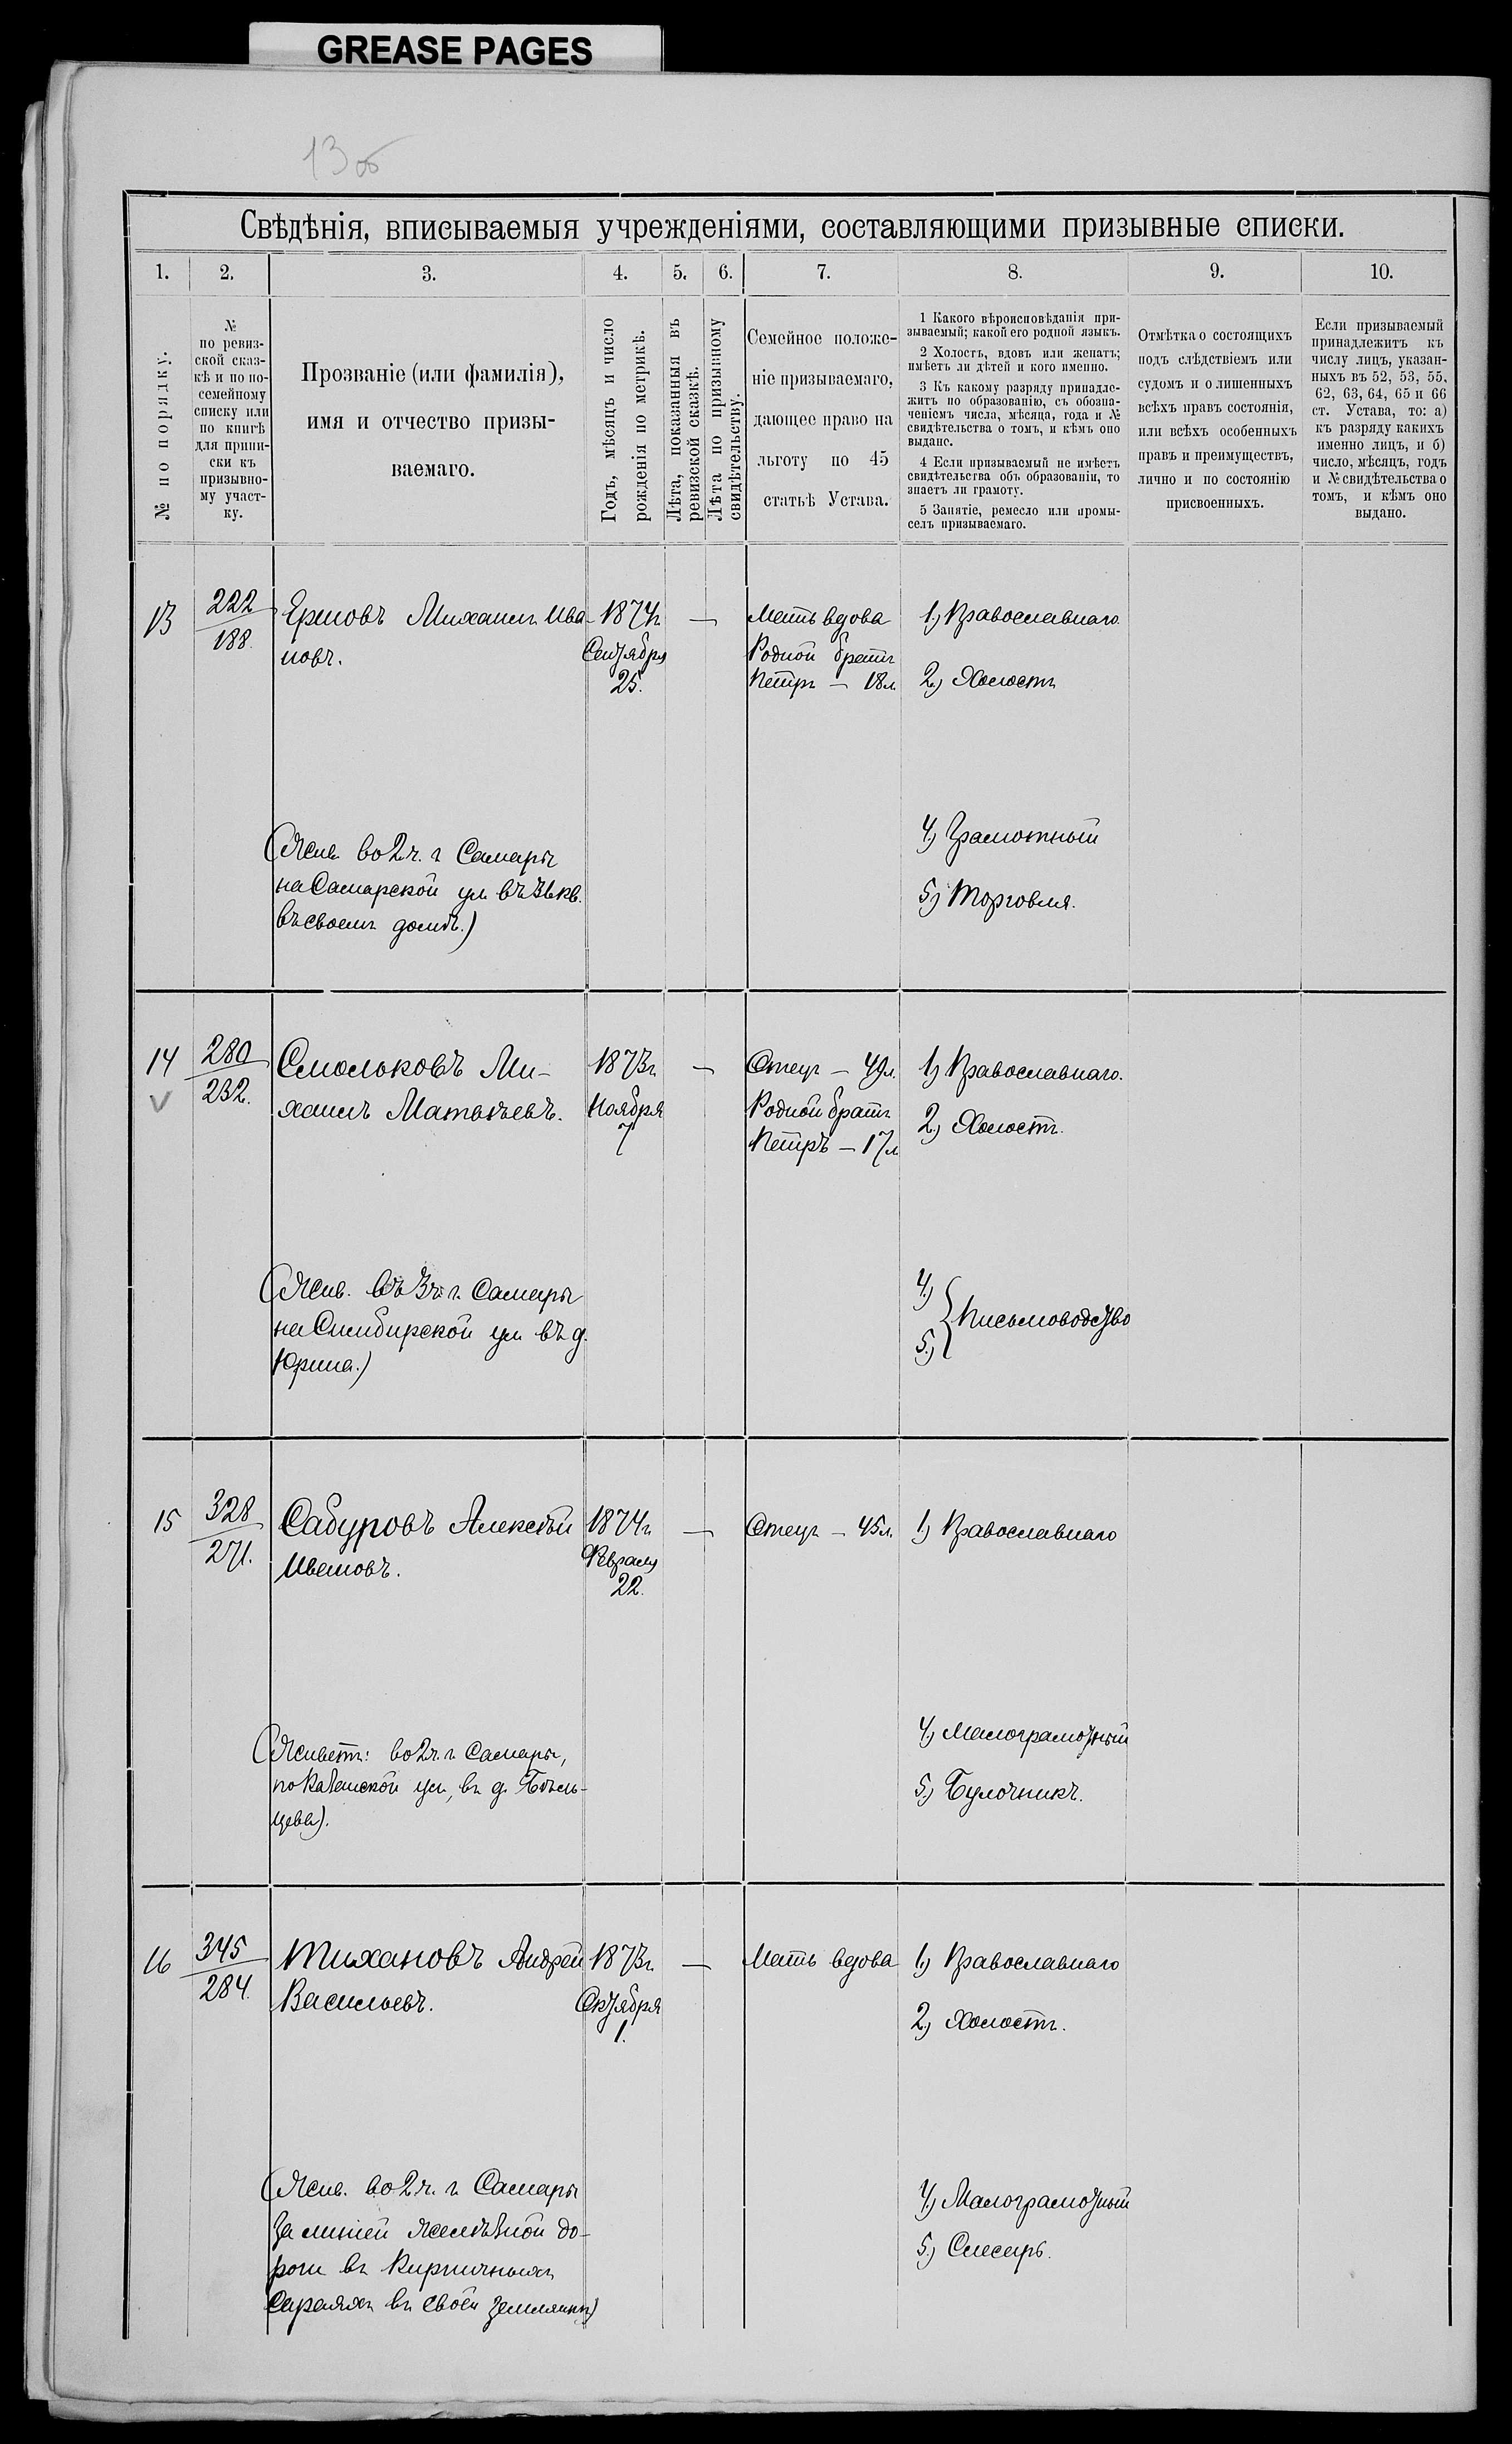 GREASE PAGES
13 об
Свѣдѣнія, вписываемыя учрежденіями, составляющими призывные списки.
1. 2. 3. 4. 5. 6. 7. 8. 9. 10.
№ по порядку.
№
по ревиз-
ской сказ-
кѣ и по по-
семейному
списку или
по книгѣ
для припи-
ски къ
призывно-
му участ-
ку.
Прозваніе (или фамилія),
имя и отчество призы-
ваемаго.
Годъ, мѣсяцъ и число
рожденія по метрикѣ.
Лѣта, показанныя въ
ревизской сказкѣ.
Лѣта по призывному
свидѣтельству.
Семейное положе-
ніе призываемаго,
дающее право на
льготу по 45
статьѣ Устава.
1 Какого вѣроисповѣданія при-
зываемый; какой его родной языкъ.
2 Холостъ, вдовъ или женатъ;
имѣетъ ли дѣтей и кого именно.
3 Къ какому разряду принадле-
житъ по образованію, съ обозна-
ченіемъ числа, мѣсяца, года и №
свидѣтельства о томъ, и кѣмъ оно
выдано.
4 Если призываемый не имѣетъ
свидѣтельства объ образованіи, то
знаетъ ли грамоту.
5 Занятіе, ремесло или промы-
селъ призываемаго.
Отмѣтка о состоящихъ
подъ слѣдствіемъ или
судомъ и о лишенныхъ
всѣхъ правъ состоянія,
или всѣхъ особенныхъ
правъ и преимуществъ,
лично и по состоянію
присвоенныхъ.
Если призываемый
принадлежитъ къ
числу лицъ, указан-
ныхъ въ 52, 53, 55,
62, 63, 64, 65 и 66
ст. Устава, то: а)
къ разряду какихъ
именно лицъ, и б)
число, мѣсяцъ, годъ
и № свидѣтельства о
томъ, и кѣмъ оно
выдано.
13
222
188.
Ершовъ Михаилъ Ива-
новъ.
1874г.
Сентября
25.
—
Мать вдова
Родной братъ
Петръ — 18л.
1.) Православнаго.
2.) Холостъ
4.) Грамотный
5.) Торговля.
(Жив. во 2 ч. г. Самары
на Самарской ул. въ кв.
въ своемъ домѣ.)
14
280
232.
Смольковъ Ми-
хаилъ Матвѣевъ.
1873г.
Ноября
7
—
Отецъ — 49л.
Родной братъ
Петръ — 17л.
1.) Православнаго.
2.) Холостъ.
4.)
5.)
Письмоводство
(Жив. въ 3 ч. г. Самары
на Симбирской ул. въ д.
Юрина.)
15
328
271.
Сабуровъ Алексѣй
Ивановъ.
1874г.
Февраля
22.
—
Отецъ — 45л.
1.) Православнаго
4.) Малограмотный
5.) Булочникъ.
(Живетъ: во 2 ч. г. Самары,
по Казанской ул., въ д. Бѣль-
цева).
16
345
284.
Тихановъ Андрей
Васильевъ.
1873г.
Октября
1.
—
Мать вдова
1.) Православнаго
2.) Холостъ.
4.) Малограмотный
5.) Слесарь.
(Жив. во 2 ч. г. Самары
за линіей желѣзной до-
роги въ кирпичныхъ
сараяхъ въ своей землянкѣ)